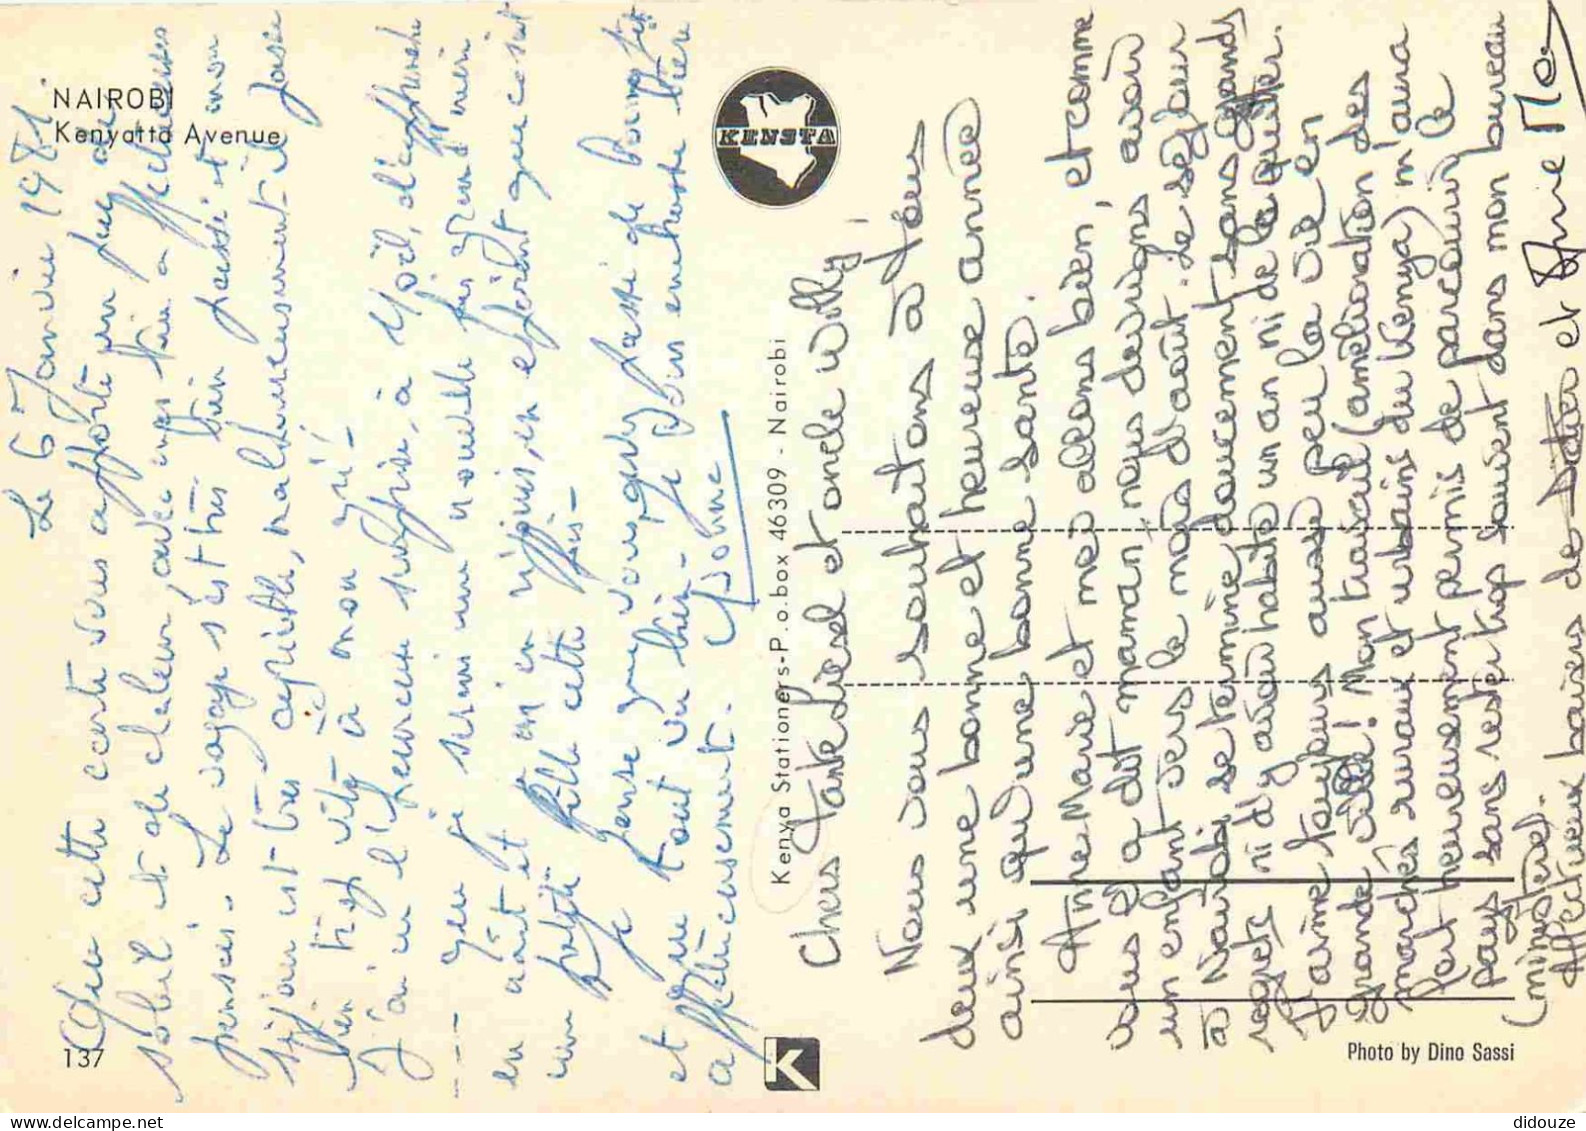 NAIROBI
Kenyatta Avenue
Le 6 Janvier 1981.
Que cette carte vous apporte un peu de
soleil et de chaleur avec mes très affectueuses
pensées. Le voyage s'est très bien passé et mon
séjour est très agréable, malheureusement il passe
bien trop vite à mon gré -
J'ai eu l'heureuse surprise, à Noël, d'apprendre
que je serai une nouvelle fois grand'mère
en août et m'en réjouis, en espérant que ce soit
une petite fille cette fois -
Je pense que vous gardez Lassi de
et que tout va bien - Je vous embrasse bien
affectueusement. Yvonne
137
KENSTA
Kenya Stationers-P.o.box 46309 - Nairobi
K
Chers tante Liesel et oncle Willy,
Nous vous souhaitons à tous
deux une bonne et heureuse année
ainsi qu'une bonne santé.
Anne Marie et moi allons bien, et comme
vous l'a dit maman, nous devrions avoir
un enfant vers le mois d'août. Le séjour
à Nairobi se termine doucement sans grands
regrets ni d'y avoir habité un an ni de la quitter.
J'aime toujours aussi peu la vie en
grande ville! Mon travail (amélioration des
marchés ruraux et urbains du Kenya) m'aura
fort heureusement permis de parcourir le
pays sans rester trop souvent dans mon bureau
(ministériel.
Affectueux baisers de Didier et Anne Marie
Photo by Dino Sassi
didouze